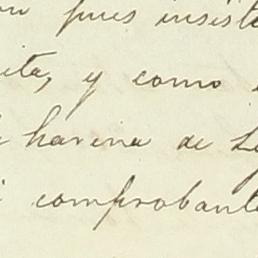 on pues insist
ita, y como
harina de L
i comprobant